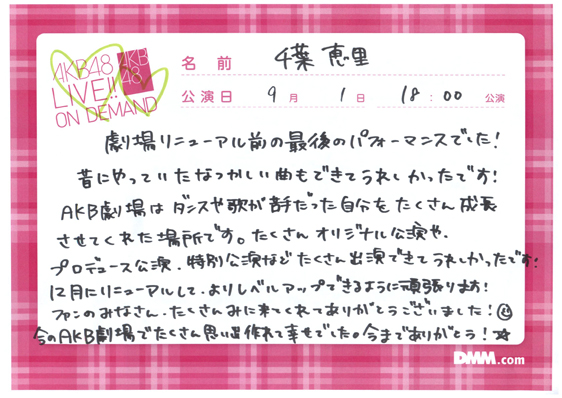 AKB48
LIVE!!
ON DEMAND
AKB
48
名前 千葉恵里
公演日 9月 1日 18:00 公演
劇場リニューアル前の最後のパフォーマンスでした!
昔にやっていたなつかしい曲もできてうれしかったです!
AKB劇場はダンスや歌が苦手だった自分をたくさん成長
させてくれた場所です。たくさんオリジナル公演や、
プロデュース公演、特別公演などたくさん出演できてうれしかったです!
12月にリニューアルして、よりレベルアップできるように頑張ります!
ファンのみなさん、たくさんみに来てくれてありがとうございました!☺
今のAKB劇場でたくさん思い出作れて幸せでした。今までありがとう!☆
DMM.com